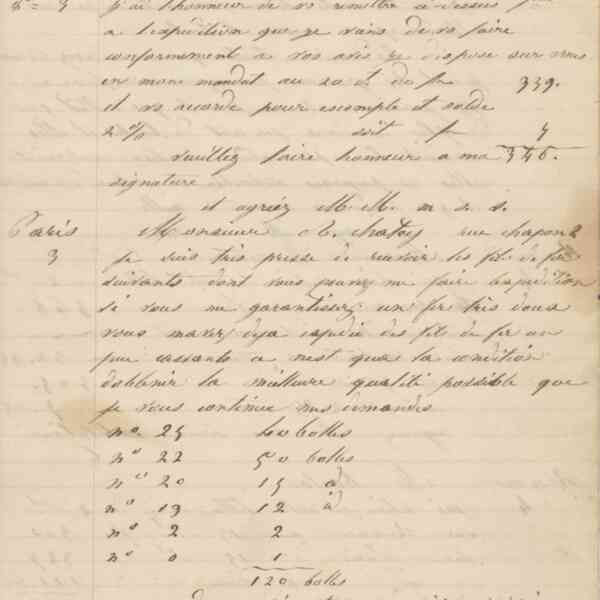 j'ai l'honneur de vs remettre ci dessus
a l'expédition que je viens de vs faire
conformement a vos avis je dispose sur vous
en mon mandat au 20 ct de fr 339.
et vs accorde pour escompte et solde
2 % soit fr 7
veuillez faire honneur a ma 346.
signature
et agréez M. M. m s s.
Paris Monsieur A. Chatoy rue chapon 2
3 je suis tres presse de recevoir les fils de fer
suivants dont vous pouvez me faire l'expédition
si vous me garantissez un fer tres doux
vous m'avez deja expedie des fils de fer un
peu cassants ce n'est que a la condition
d'obtenir la meilleure qualité possible que
je vous continue mes demandes
no 25 bottes
no 22 50 bottes
no 20 15 d
no 19 12 d
no 2 2
no 0 1
120 bottes